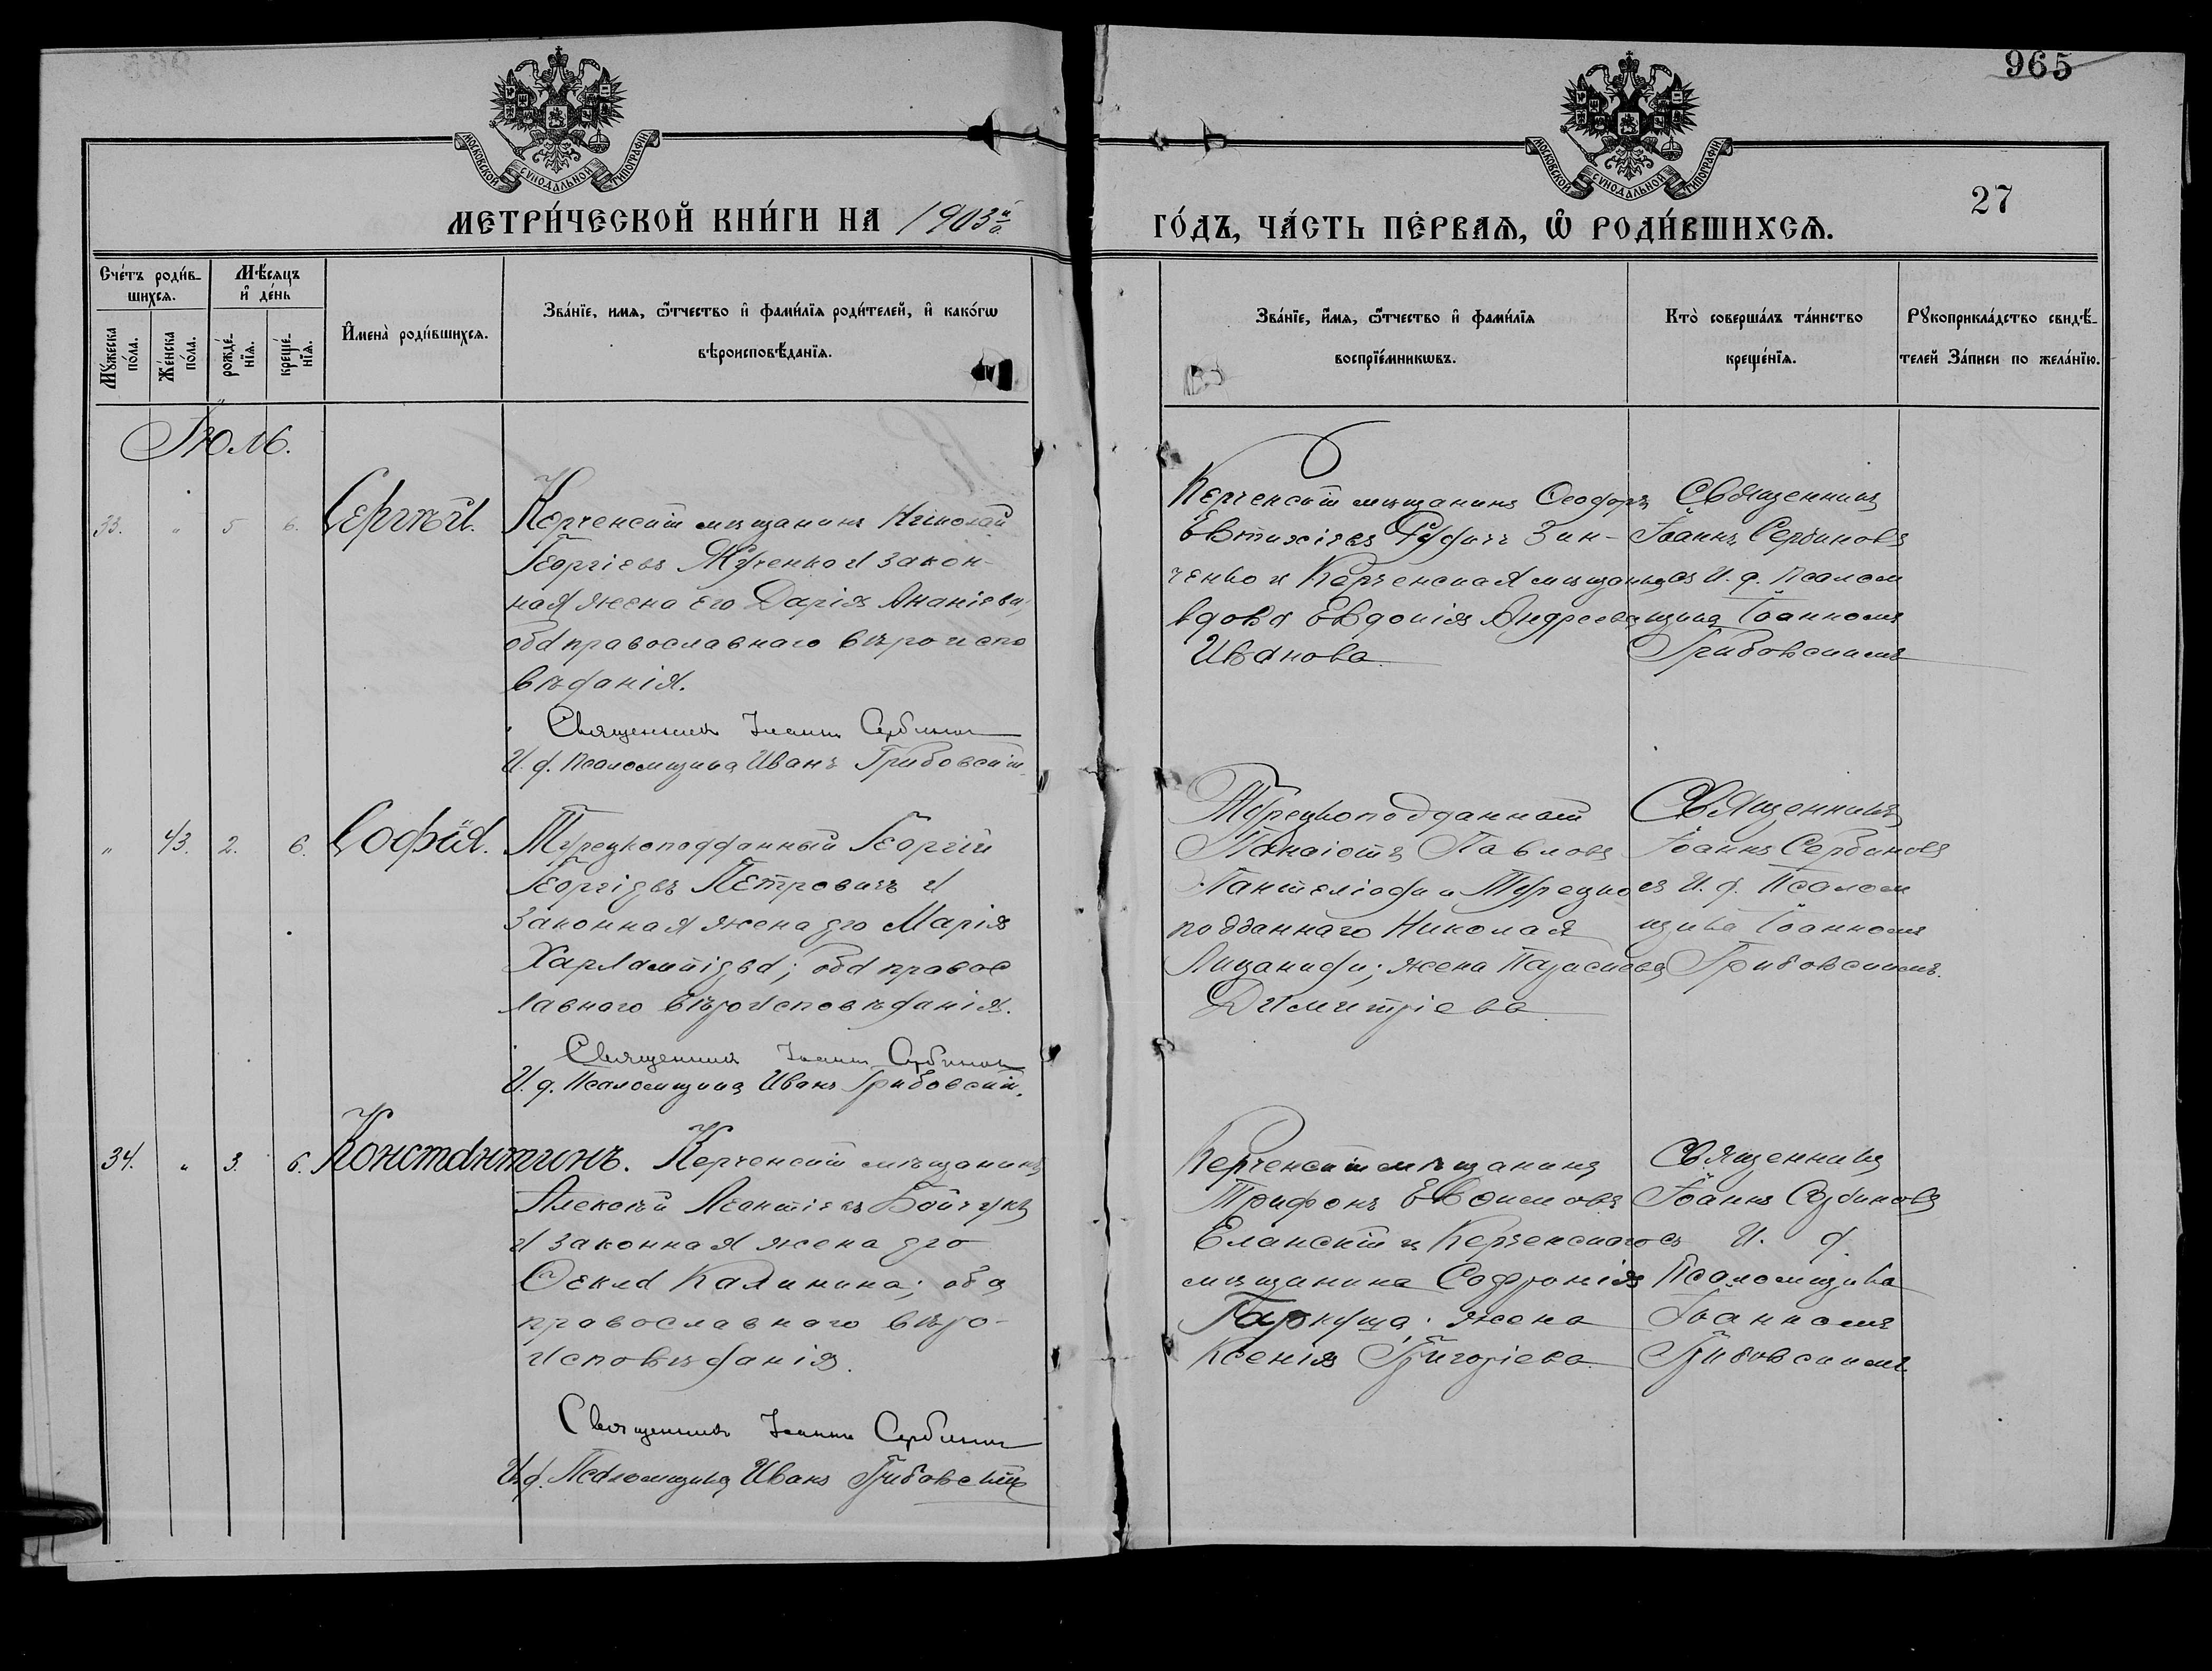 965
27
МОСКОВСКОЙ СѴНОДАЛЬНОЙ ТИПОГРАФІИ
МОСКОВСКОЙ СѴНОДАЛЬНОЙ ТИПОГРАФІИ
МЕТРИ́ЧЕСКОЙ КНИ́ГИ НА 1903й г.
ГО́ДЪ, ЧА́СТЬ ПЕ́РВАЯ, Ѡ҆ РОДИ́ВШИХСЯ.
Сче́тъ роди́в-
шихся.
Му́жеска по́ла.
Же́нска по́ла.
Мѣ́сяцъ
и҆ де́нь
рожде́-нїя.
креще́-нїя.
И҆мена̀ роди́вшихся.
Зва́нїе, имя, ѻ҆́тчество и҆ фами́лїя роди́телей, и҆ како́гѡ
вѣроисповѣ́данїя.
Зва́нїе, и҆́мя, ѻ҆́тчество и҆ фами́лїя
воспрїе́мникѡвъ.
Кто̀ соверша́лъ та́инство
креще́нїя.
Рꙋкоприкла́дство свидѣ́-
телей За́писи по жела́нїю.
Іюль.
33. " 5 6. Сергѣй.
Керченскій мѣщанинъ Николай
Георгіевъ Жученко и закон-
ная жена его Дарія Ананіева;
оба православнаго вѣроиспо
вѣданія.
Священникъ Іоаннъ Сербиновъ
И. д. Псаломщика Иванъ Грибовскій.
Керченскій мѣщанинъ Ѳеодоръ
Евтихіевъ Зин-
ченко и Керченская мѣщанка
вдова Евдокія Андреева
Иванова.
Священникъ
Іоаннъ Сербиновъ
съ И. д. Псалом
щика Іоанномъ
Грибовскимъ
" 43. 2. 6. Софія.
Турецкоподданный Георгій
Георгіевъ Петровичъ и
законная жена его Марія
Харлампіева; оба правос
лавнаго вѣроисповѣданія.
Священникъ Іоаннъ Сербиновъ
И. д. Псаломщика Иванъ Грибовскій.
Турецкоподданный
Панаіотъ Павловъ
Пантеліоди и Турецко
подданнаго Николая
жена Параскева
Димитріева.
Священникъ
Іоаннъ Сербиновъ
съ И. д. Псалом
щика Іоанномъ
Грибовскимъ.
34. " 3. 6. Константинъ.
Керченскій мѣщанинъ
Алексѣй Леонтіевъ Бойчукъ
и законная жена его
Ѳекла Калинина; оба
православнаго вѣро-
исповѣданія.
Священникъ Іоаннъ Сербиновъ
И. д. Псаломщика Иванъ Грибовскій
Керченскій мѣщанинъ
Трифонъ Евфимовъ
Еланскій и Керченскаго
мѣщанина Софронія
Гаркуша жена
Ксенія Григоріева.
Священникъ
Іоаннъ Сербиновъ
съ И. д.
Псаломщика
Іоанномъ
Грибовскимъ